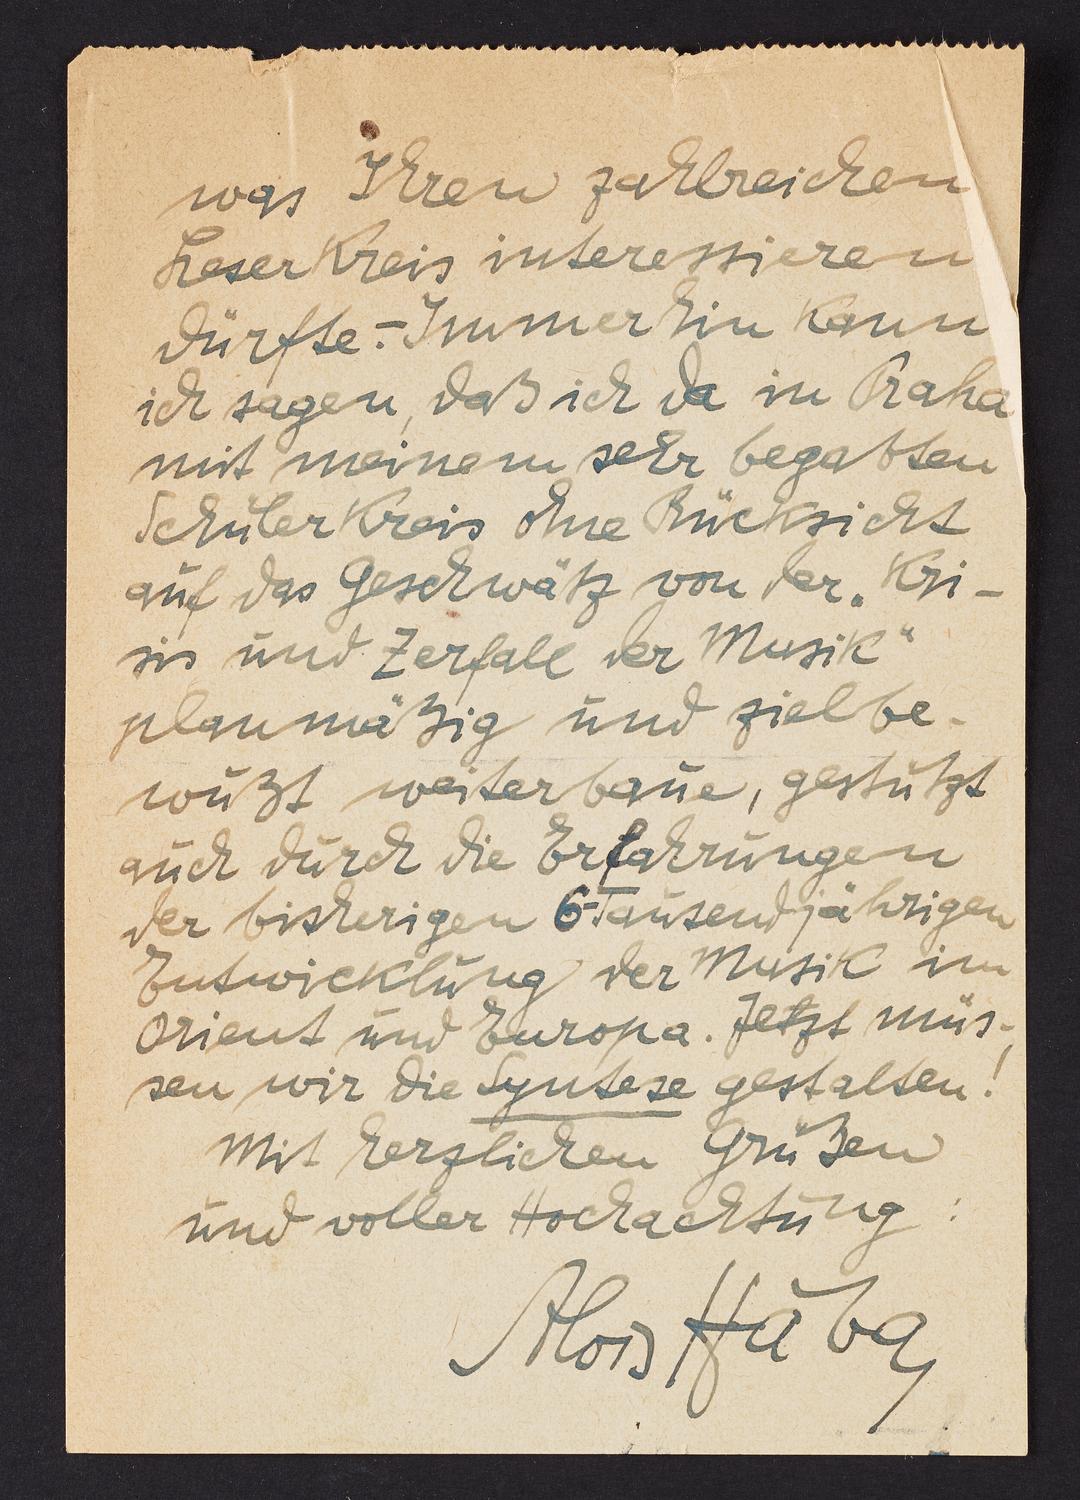 was Ihren zahlreichen
Leserkreis interessieren
dürfte. – Immerhin kann
ich sagen, daß ich da in Praha
mit meinem sehr begabten
Schülerkreis ohne Rücksicht
auf das Geschwätz von der „Kri-
sis und Zerfall der Musik"
planmäßig und zielbe-
wußt weiterbaue, gestützt
auch durch die Erfahrungen
der bisherigen 6-Tausendjährigen
Entwicklung der Musik im
Orient und Europa. Jetzt müs-
sen wir die Syntese gestalten!
Mit herzlichen Grüßen
und voller Hochachtung:
Alois Hába